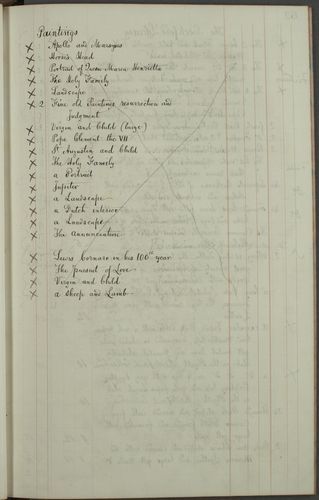 Paintings
x Apollo and Marsyas
x Horse's Head
x Portrait of Queen Maria Henrietta
x The Holy Family
x Landscape
2 Fine old Paintings resurrection and
judgment
x Virgin and Child (large)
x Pope Clement the VII
x St Augustin and Child
x The Holy Family
x a Portrait
x Jupiter
x a Landscape
x a Dutch interior
x a Landscape
x The Annunciation
x Lewis Cornaro in his 100th year
x The Pursuit of Love
x Virgin and Child
x a Sheep and Lamb